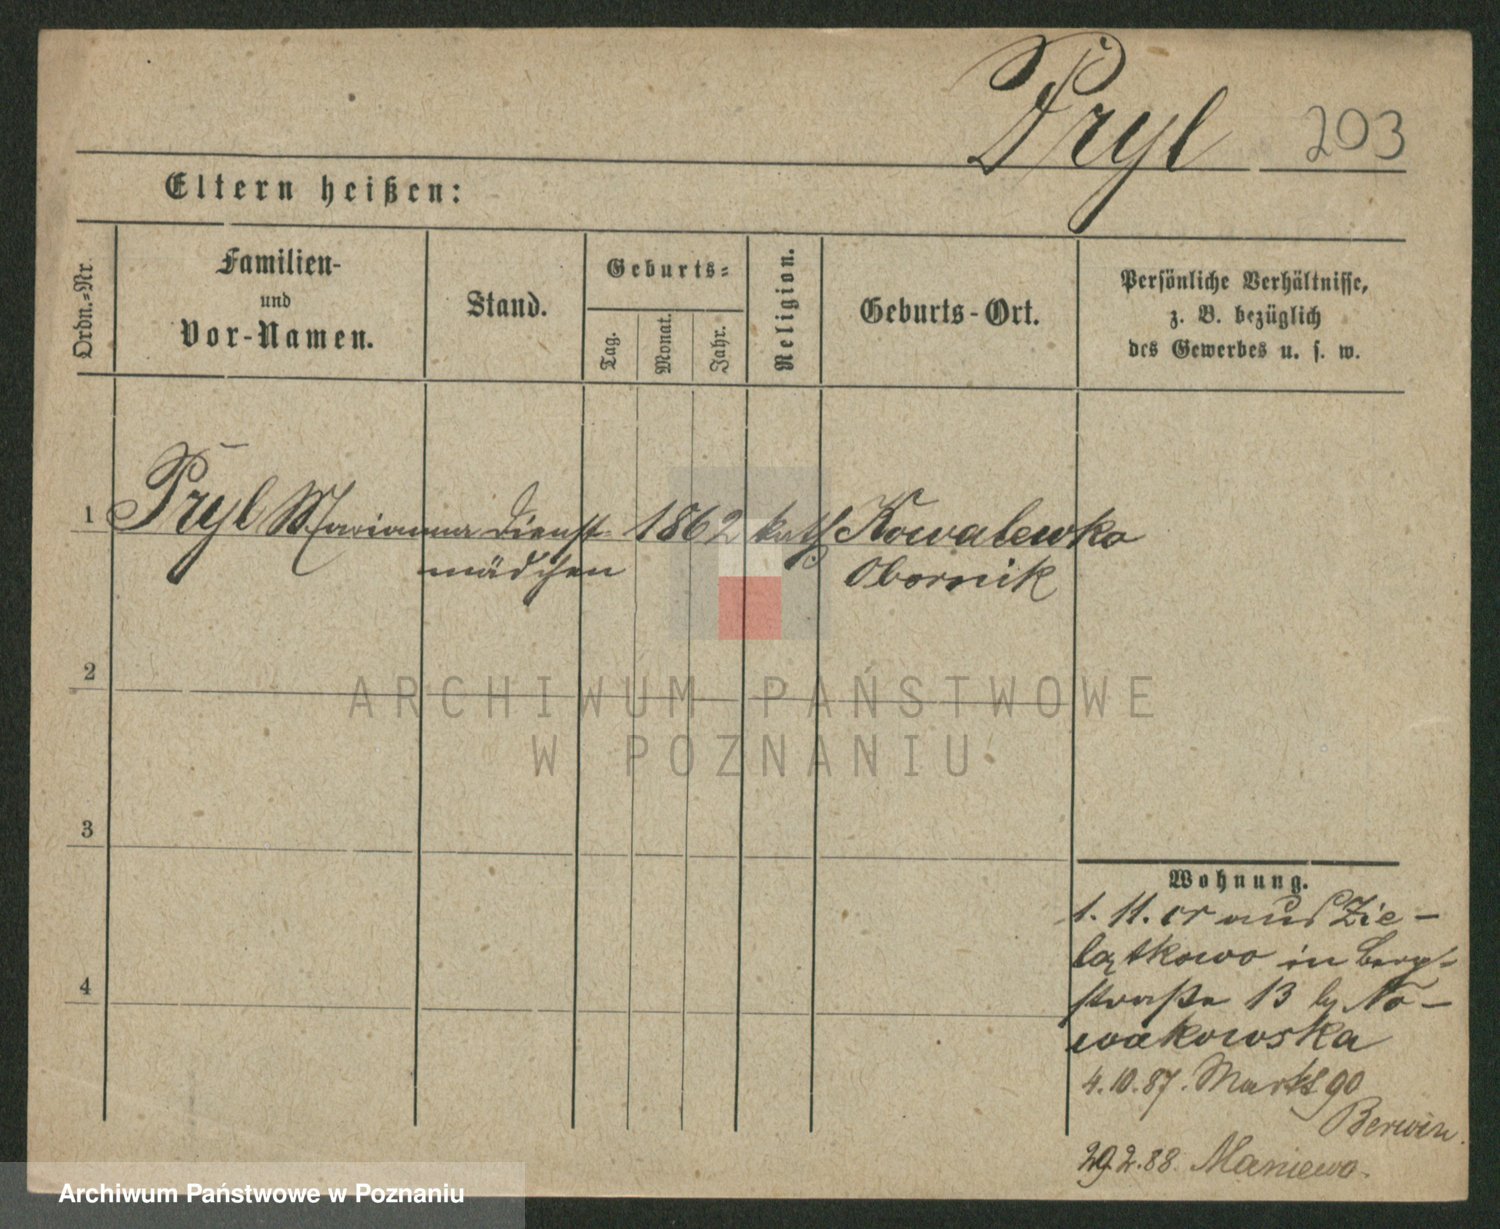 Pryl 203
Eltern heißen:
Ordn.-Nr.
Familien-
und
Vor-Namen.
Stand.
Geburts-
Tag.
Monat.
Jahr.
Religion.
Geburts-Ort.
Persönliche Verhältnisse,
z. B. bezüglich
des Gewerbes u. s. w.
1 Pryl Marianna Dienst- 1862 kath Kowalewko
mädchen Obornik
2
ARCHIWUM PAŃSTWOWE
W POZNANIU
3
Wohnung.
1. 11. cr aus Zie-
lątkowo in Berg-
straße 13 by No-
wakowska
4
4.10.87. Markt 90
Berwin.
29.2.88. Maniewo.
Archiwum Państwowe w Poznaniu